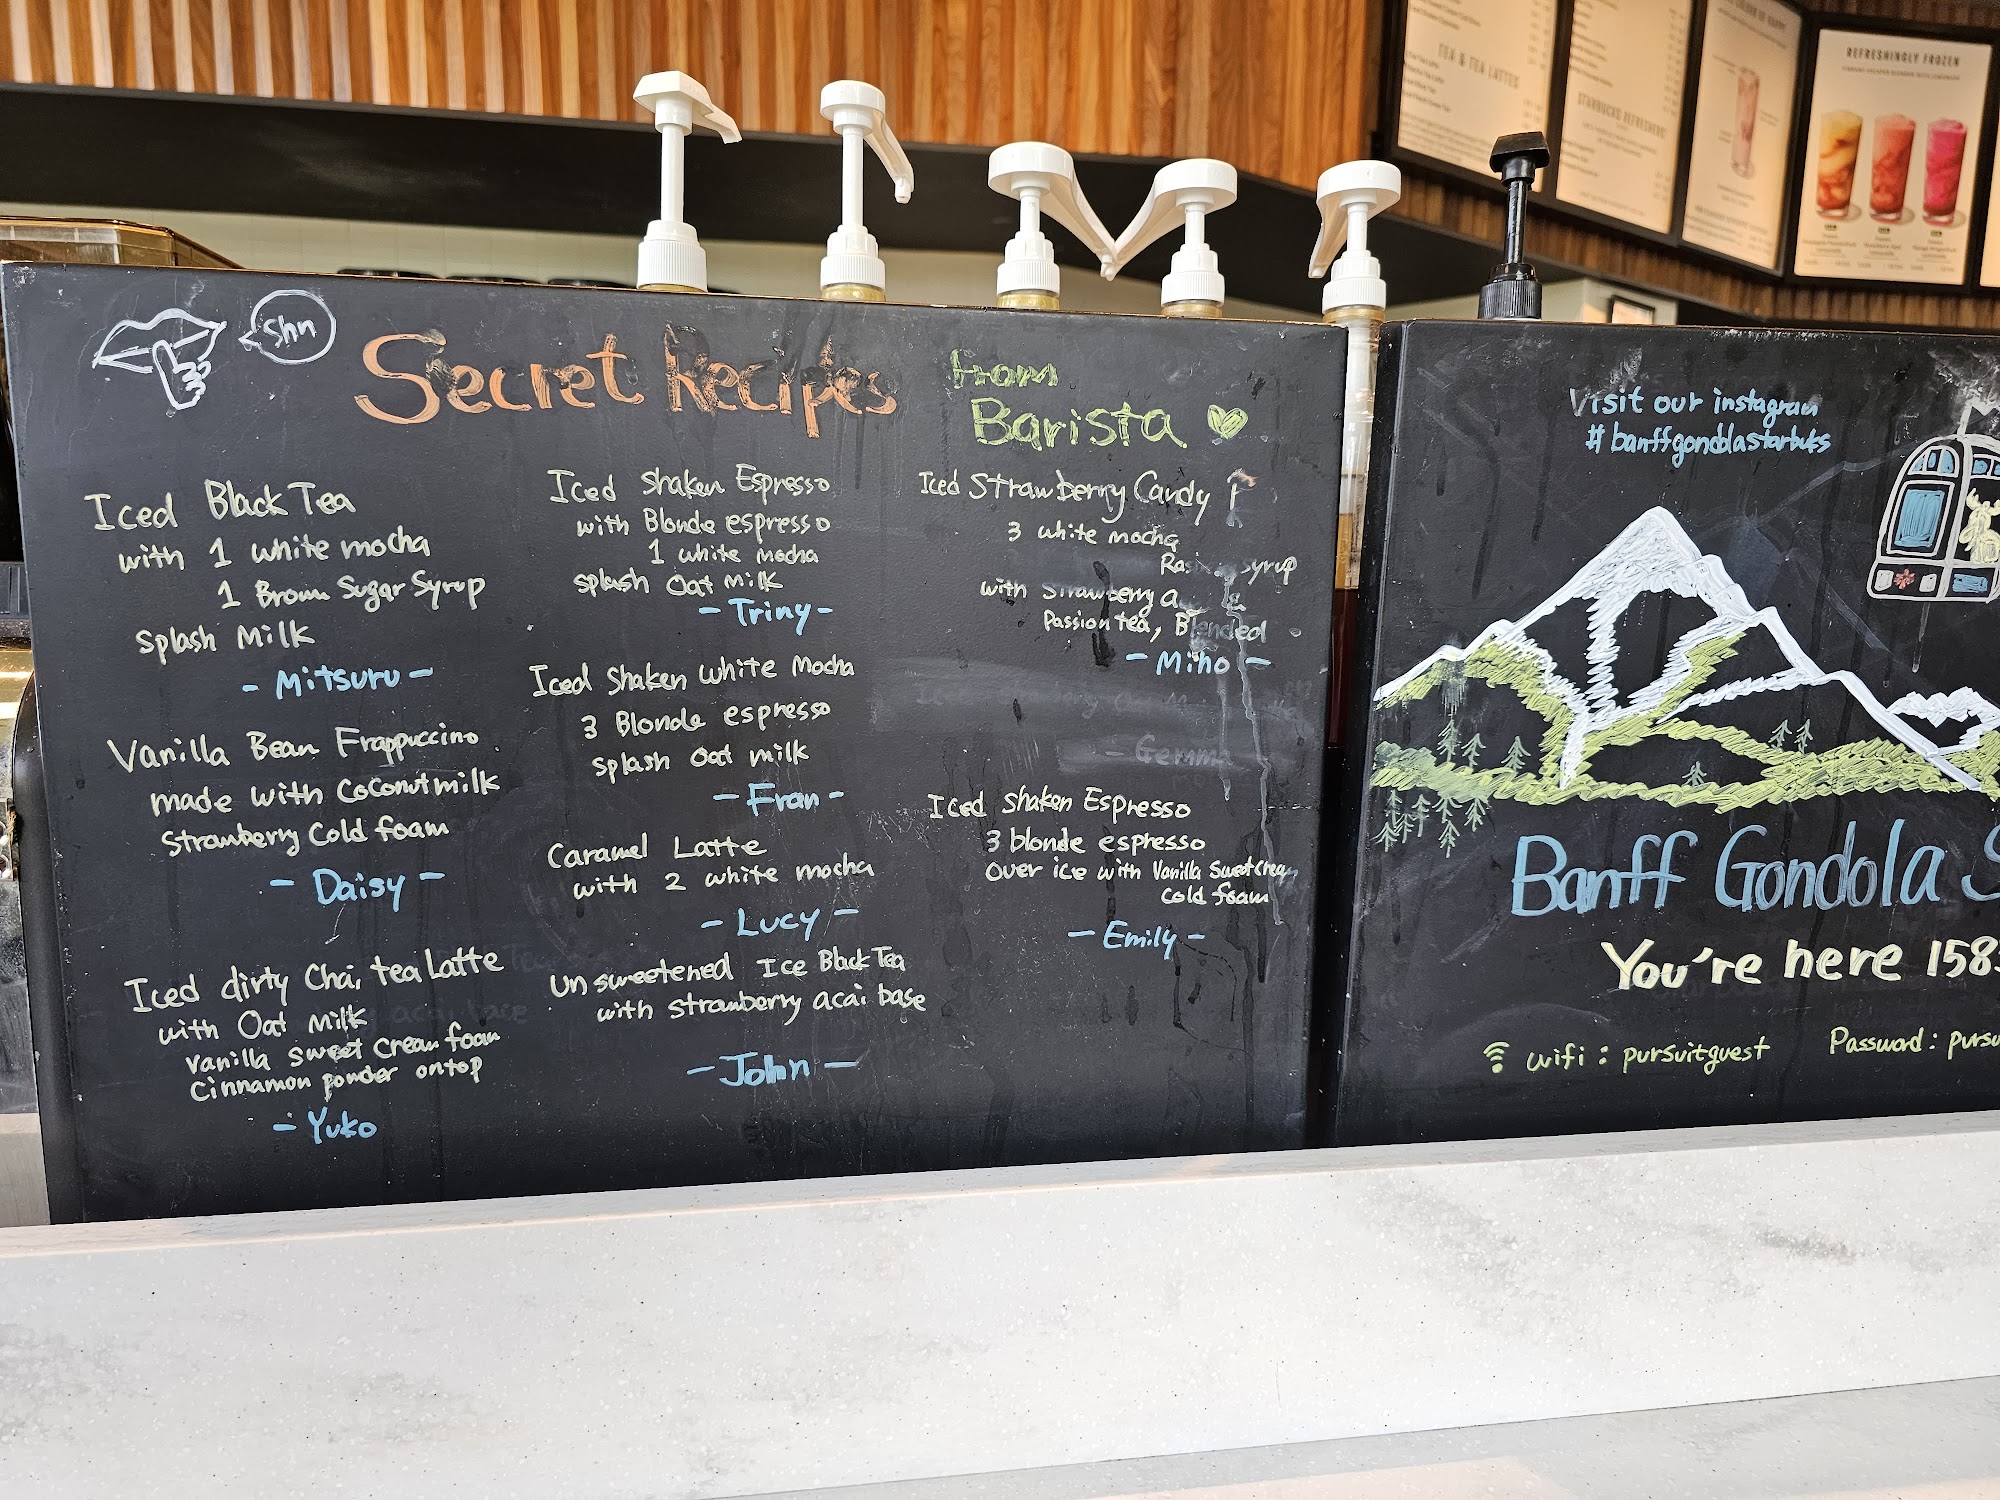 Shh
Secret Recipes
from
Barista
Iced Black Tea
with 1 white mocha
1 Brown Sugar Syrup
Splash Milk
- Mitsuru -
Vanilla Bean Frappuccino
made with Coconutmilk
Strawberry Cold foam
- Daisy -
Iced dirty Chai tea Latte
with Oat Milk
vanilla sweet cream foam
Cinnamon powder on top
- Yuko
Iced Shaken Espresso
with Blonde espresso
1 white mocha
splash Oat Milk
- Triny -
Iced Shaken White Mocha
3 Blonde espresso
splash oat milk
- Fran -
Caramel Latte
with 2 white mocha
- Lucy -
Unsweetened Ice Black Tea
with strawberry acai base
- John -
Iced Strawberry Candy
3 white mocha
syrup
with Strawberry
Passion tea, Blended
- Miho -
Gemma
Iced Shaken Espresso
3 blonde espresso
over ice with Vanilla Sweetcream
Cold foam
- Emily -
Visit our instagram
# banffgondolastarbuks
Banff Gondola S
You're here 158
wifi : pursuitguest
Password : pursu
TEA & TEA LATTES
STARBUCKS REFRESHERS
REFRESHINGLY FROZEN